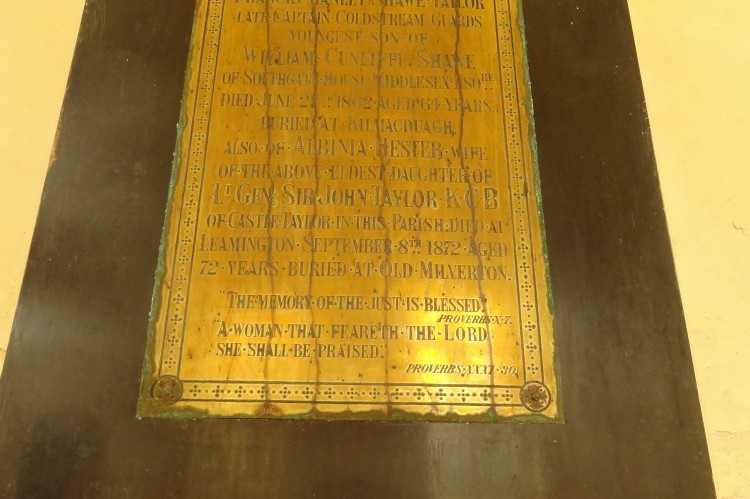 FRANCIS MANLEY SHAWE TAYLOR
LATE CAPTAIN COLDSTREAM GUARDS
YOUNGEST SON OF
WILLIAM CUNLIFFE SHAWE
OF SOUTHGATE HOUSE MIDDLESEX ESQRE
DIED JUNE 21ST 1862 AGED 64 YEARS.
BURIED AT KILMACDUAGH.
ALSO OF ALBINIA HESTER WIFE
OF THE ABOVE ELDEST DAUGHTER OF
LT GENL SIR JOHN TAYLOR K.C.B
OF CASTLE TAYLOR IN THIS PARISH DIED AT
LEAMINGTON SEPTEMBER 8TH 1872 AGED
72 YEARS BURIED AT OLD MILVERTON.
"THE MEMORY OF THE JUST IS BLESSED"
PROVERBS X. 7.
"A WOMAN THAT FEARETH THE LORD
SHE SHALL BE PRAISED".
PROVERBS XXXI 30.